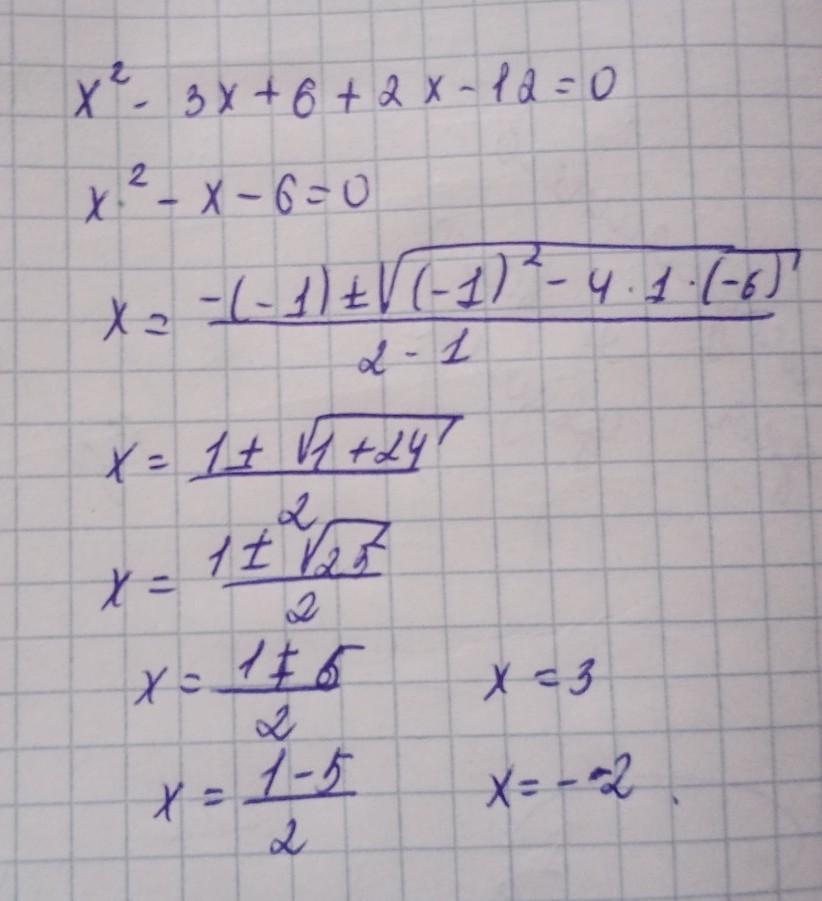 x² - 3x + 6 + 2x - 12 = 0
x² - x - 6 = 0
x = (-(-1) ± √((-1)² - 4 · 1 · (-6))) / (2 - 1)
x = (1 ± √(1 + 24)) / 2
x = (1 ± √25) / 2
x = (1 ± 5) / 2    x = 3
x = (1 - 5) / 2    x = -2